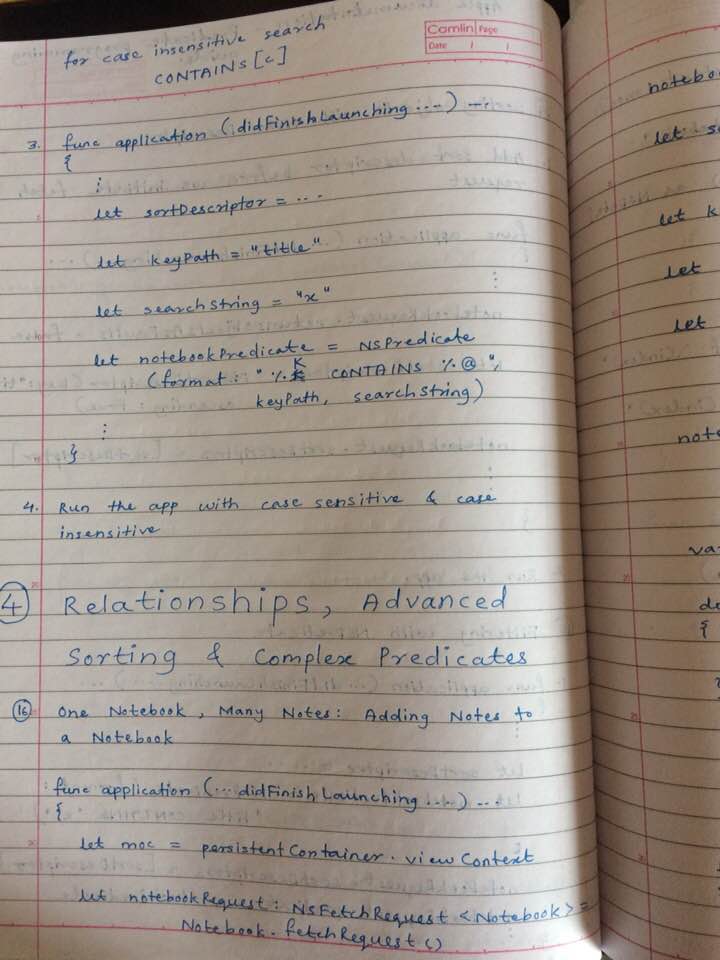 for case insensitive search
CONTAINS [c]
Camlin Page
Date / /
3. func application (didFinishLaunching ...) ...
{
⋮
let sortDescriptor = ...
let keyPath = "title"
let searchString = "x"
let notebookPredicate = NSPredicate
(format: "%K CONTAINS %@",
keyPath, searchString)
⋮
}
4. Run the app with case sensitive & case
insensitive
4 Relationships, Advanced
Sorting & Complex Predicates
16 One Notebook, Many Notes: Adding Notes to
a Notebook
func application (... didFinishLaunching ...) ...
{
let moc = persistentContainer.viewContext
let notebookRequest: NSFetchRequest <Notebook> =
Notebook.fetchRequest()
let
let k
let
let
{